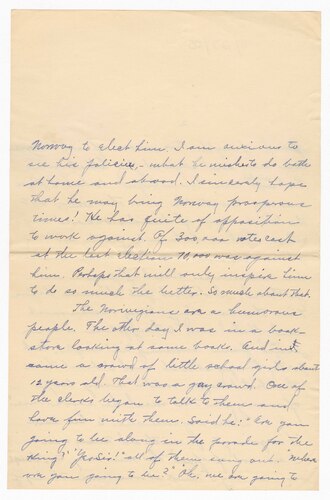 Norway to elect him. I am anxious to
see his policies, - what he wishes to do both
at home and abroad. I sincerely hope
that he may bring Norway prosperous
times! He has quite of opposition
to work against. Of 300,000 votes cast
at the last election 70,000 was against
him. Perhaps that will only inspire him
to do so much the better. So much about that.
The Norwegians are a humorous
people. The other day I was in a book-
store looking at some books. And in
came a crowd of little school girls about
12 years old. That was a gay crowd. One of
the clerks began to talk to them and
have fun with them. Said he: "Are you
going to be along in the parade for the
King?" "Yes Sir!" all of them sang out. "Where
are you going to be?" "Oh, we are going to